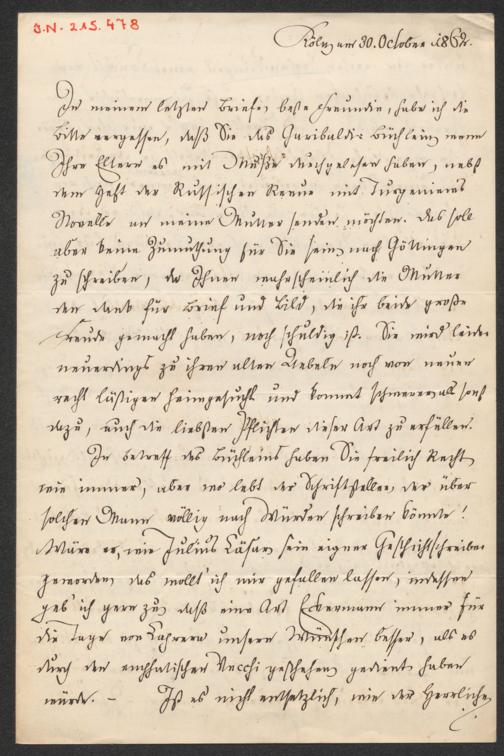 J.N. 215.478
Köln, am 30. October 1862.
In meinem letzten Briefe, beste Freundin, habe ich die
Bitte vergessen, daß Sie das Garibaldi-Büchlein wenn
Ihre Eltern es mit Muße durchgelesen haben, nebst
dem Heft der Russischen Revue mit Turgeniews
Novelle an meine Mutter senden möchten. Das soll
aber keine Zumuthung für Sie sein, nach Göttingen
zu schreiben, da Ihnen wahrscheinlich die Mutter
den Dank für Brief und Bild, die ihr beide große
Freude gemacht haben, noch schuldig ist. Sie wird leider
neuerdings zu ihren alten Uebeln noch von neuen
recht lästigen heimgesucht und kommt schwerer als sonst
dazu, auch die liebsten Pflichten dieser Art zu erfüllen.
In betreff des Büchleins haben Sie freilich Recht,
wie immer, aber wo lebt der Schriftsteller, der über
solchen Mann völlig nach Würden schreiben könnte!
Wäre er, wie Julius Cäsar, sein eigner Geschichtschreiber
geworden, das wollt' ich mir gefallen lassen, indessen
geb' ich gern zu, daß eine Art Eckermann immer für
die Tage von Caprera unsern Wünschen besser, als es
durch den emphatischen Vecchi geschehen, gedient haben
würde. – Ist es nicht entsetzlich, wie der Herrliche